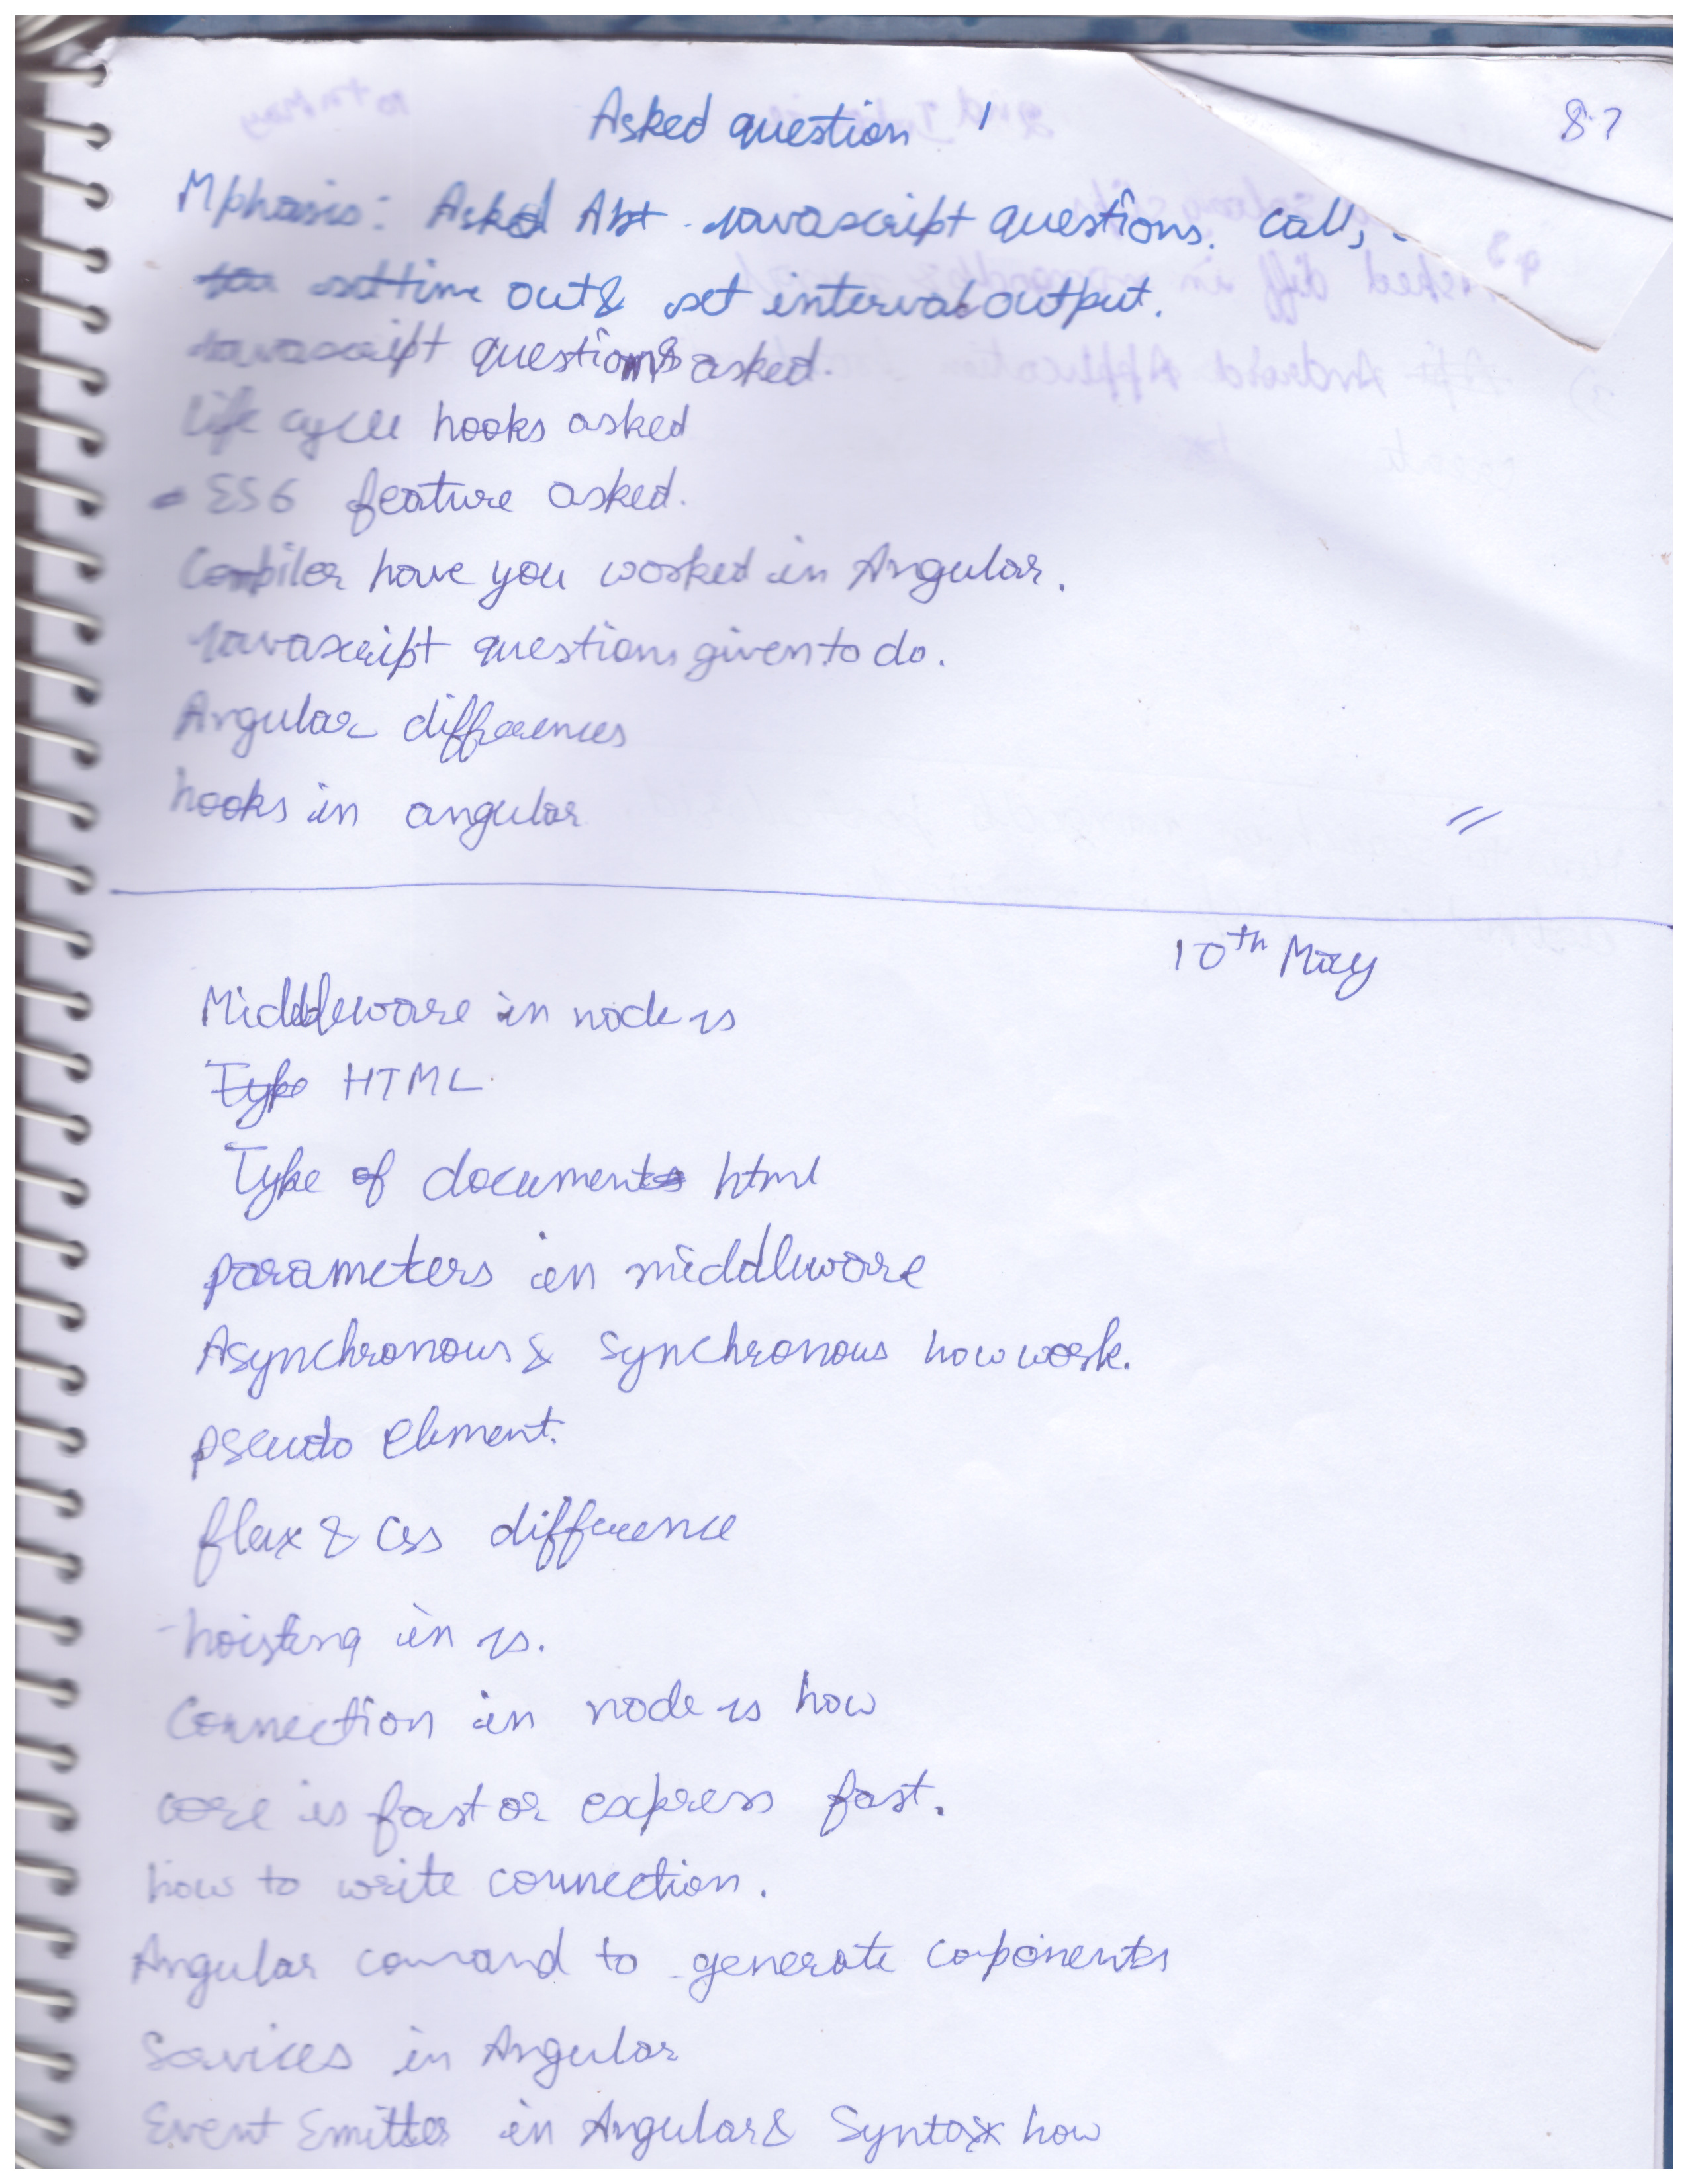 Asked question
8.7
Mphasis: Asked Abt Javascript questions. call,
settime out & set interval output.
Javascript questions asked.
Life cycle hooks asked
ES6 feature asked.
Compiler have you worked in Angular.
Javascript questions given to do.
Angular differences
hooks in angular
10th May
Middleware in node js
Type HTML
Type of documents html
parameters in middleware
Asynchronous & Synchronous how work.
pseudo element.
flex & css difference
- hoisting in js.
Connection in node js how
core is fast or express fast.
how to write connection.
Angular comand to generate coponents
Services in Angular
Event Emitter in Angular & Syntax how